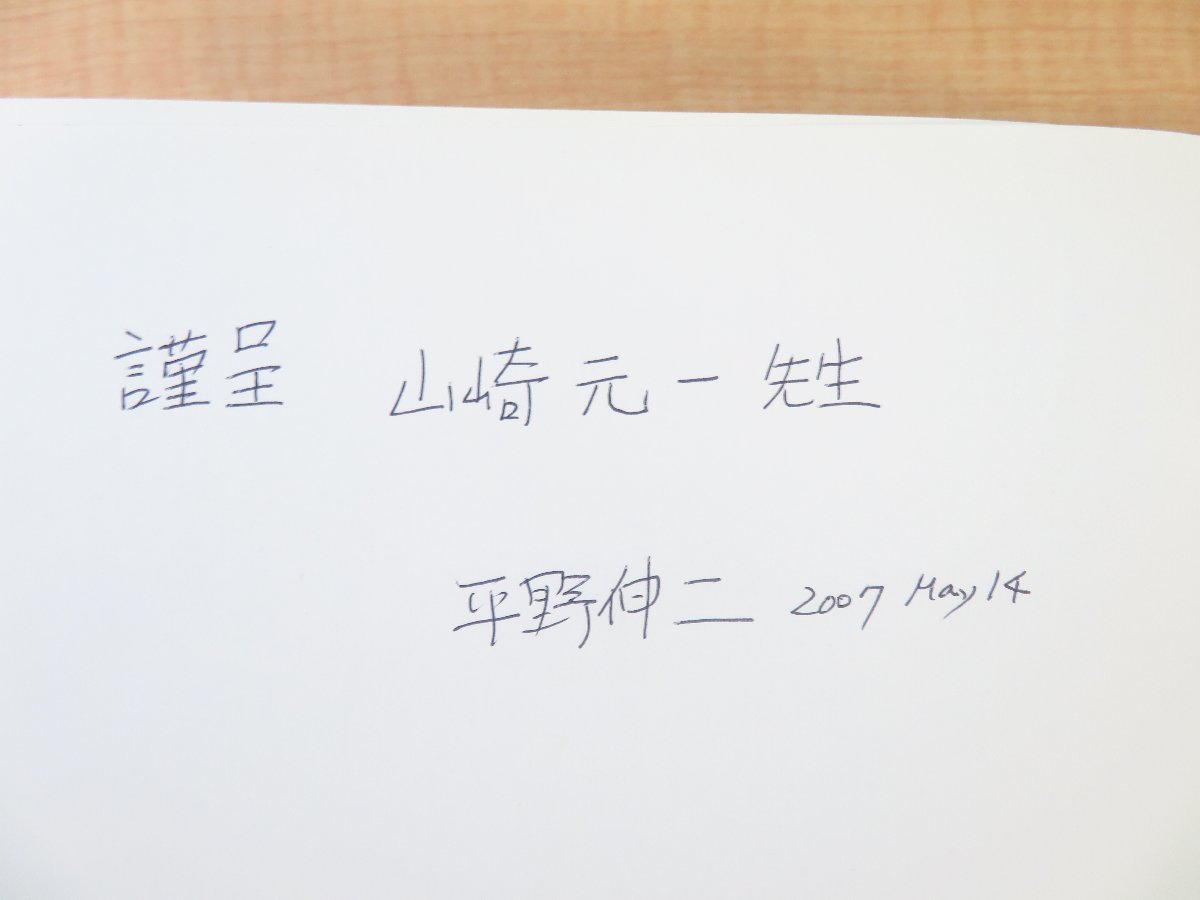 謹呈 山崎元一先生
平野伸二 2007 May 14